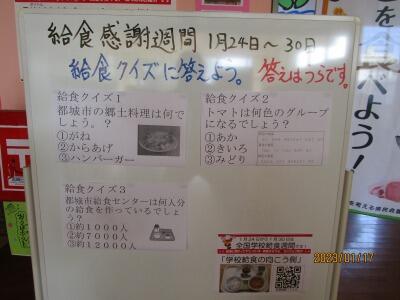 給食感謝週間 1月24日～30日
給食クイズに答えよう。 答えはうらです。
給食クイズ1
都城市の郷土料理は何でしょう。？
①がね
②からあげ
③ハンバーガー
給食クイズ2
トマトは何色のグループになるでしょう？
①あか
②きいろ
③みどり
給食クイズ3
都城市給食センターは何人分の給食を作っているでしょう？
①約1000人
②約7000人
③約12000人
1月24日から1月30日は
全国学校給食週間です
「学校給食の向こう側」
を食べよう！
2023/01/17